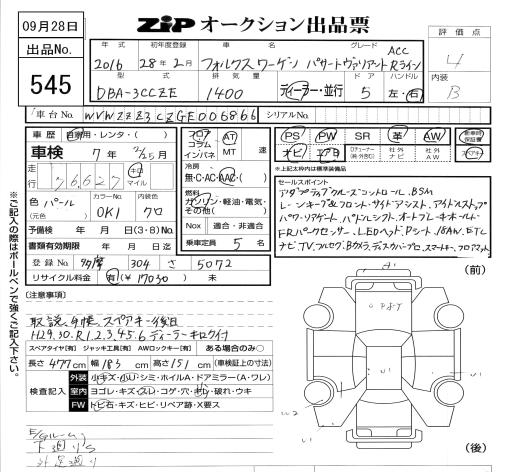 09月28日
ZiP オークション出品票
出品No.
545
年式 初年度登録 車名 グレード
2016 28年2月 フォルクスワーゲン パサートヴァリアント Rライン ACC
型式 排気量 ドア ハンドル
DBA-3CCZE 1400 ディーラー・並行 5 左・右
評価点
4
内装
B
車台No. WVWZZZ3CZGE006866 シリアルNo.
車歴 自家用・レンタ・( )
車検 7年2/25月
走行 76,627 キロ マイル
色 パール (元色) カラーNo. 0K1 内装色 クロ
予備検 年 月 日(3・8)No.
書類有効期限 年 月 日迄
登録No. 多摩 304 さ 5072
リサイクル料金 有(¥17030) 未
フロア コラム インパネ AT MT 速
冷房
無・C・AC・AAC・( )
燃料
ガソリン・軽油・電気・その他( )
Nox 適合・非適合
乗車定員 5 名
PS PW SR 革 AW 新車時保証書
ナビ エアB 社外ナビ 社外AW スペアキー
※上記太枠内は標準装備品
セールスポイント
アダプティブクルーズコントロール、BSM
レーンキープ&フロント・サイドアシスト、アイドルストップ
パワーリアゲート、パドルシフト、オートブレーキホールド
FRパークセンサー、LEDヘッド、Pシート、18AW、ETC
ナビ、TV、フルセグ、Bカメラ、ディスカバープロ、スマートキー、フロアマット
※ご記入の際はボールペンで強くご記入下さい。
(注意事項)
取説、手帳、スペアキー後日
H29,30,R1,2,3,4,5,6 ディーラーキロク付
スペアタイヤ【有】 ジャッキ工具【有】 AWロックキー【有】 ある場合のみ○
長さ 477cm 幅 183cm 高さ 151cm (車検証上の寸法)
検査記入
外装 小キズ・小U・シミ・ホイルA・ドアミラー(A・ワレ)
室内 ヨゴレ・キズ・スレ・コゲ・穴・ハガレ・破れ・ウキ
FW トビ石・キズ・ヒビ・リペア跡・X要ス
下廻りS
(前)
(後)